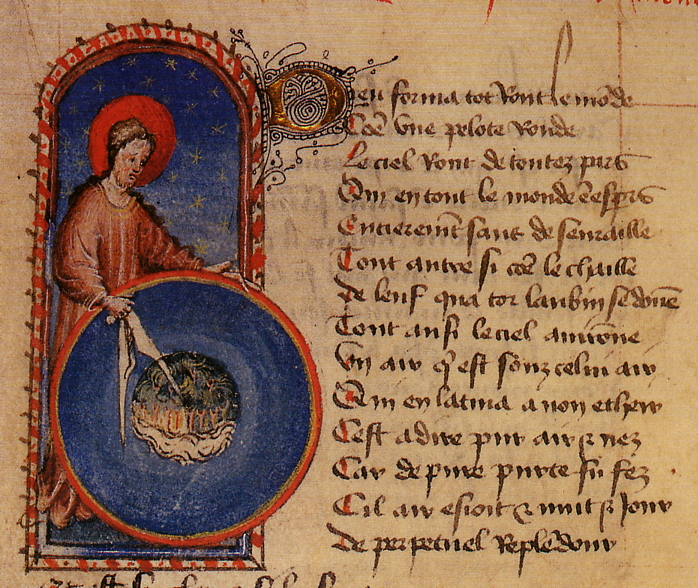 Deu forma tot ront le mōde
Cōē vne pelote ronde
Le ciel ront de toutez pars
Qui en tout le monde ē espars
Entierem̄t sans defenraille
Tout autre si cōē lechaille
De leuf qua tor laubin se dōne
Tout ausi le ciel auirōne
Vn air q̄ est souz celui air
Qui en latin a non ether
Cest a dire pur air & nez
Car de pure purte fu fez
Cil air esioit & nuit & jour
De perpetuel resplēdour